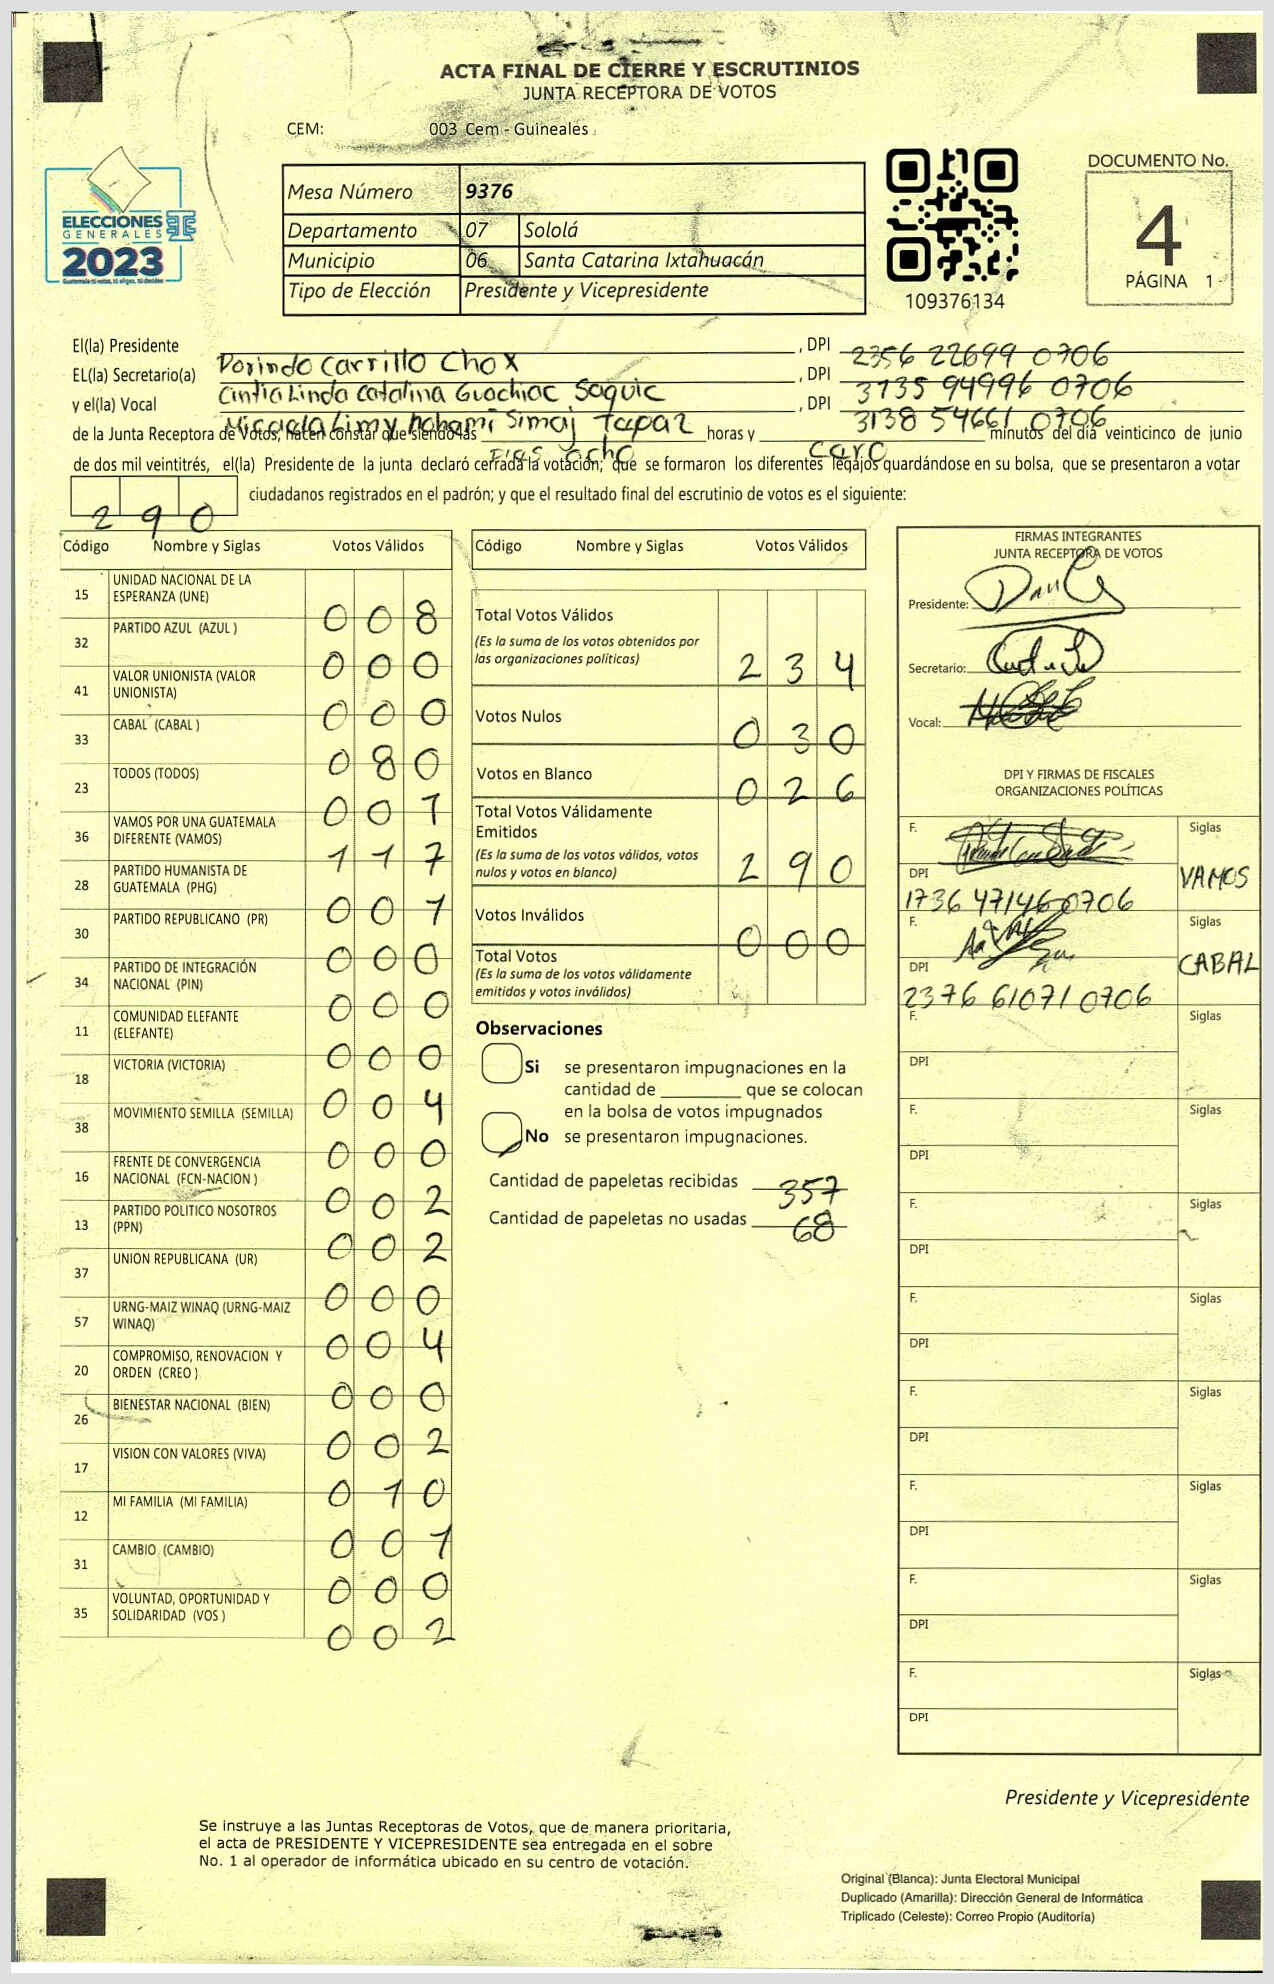 ACTA FINAL DE CIERRE Y ESCRUTINIOS
JUNTA RECEPTORA DE VOTOS
CEM: 003 Cem - Guineales
ELECCIONES
GENERALES
2023
Mesa Número 9376
Departamento 07 Sololá
Municipio 06 Santa Catarina Ixtahuacán
Tipo de Elección Presidente y Vicepresidente
109376134
DOCUMENTO No.
4
PÁGINA 1
El(la) Presidente Dorindo Carrillo Chox, DPI 2356 22699 0706
EL(la) Secretario(a) Cintia Linda Catalina Guachiac Saquic, DPI 3735 94996 0706
y el(la) Vocal Micaela Limy Nohamí Simaj Tapaz, DPI 3138 54661 0706
de la Junta Receptora de Votos, hacen constar que siendo las Dies ocho horas y cero minutos del día veinticinco de junio
de dos mil veintitrés, el(la) Presidente de la junta declaró cerrada la votación; que se formaron los diferentes legajos guardándose en su bolsa, que se presentaron a votar
290 ciudadanos registrados en el padrón; y que el resultado final del escrutinio de votos es el siguiente:
Código Nombre y Siglas Votos Válidos
15 UNIDAD NACIONAL DE LA ESPERANZA (UNE) 008
32 PARTIDO AZUL (AZUL ) 000
41 VALOR UNIONISTA (VALOR UNIONISTA) 000
33 CABAL (CABAL ) 080
23 TODOS (TODOS) 001
36 VAMOS POR UNA GUATEMALA DIFERENTE (VAMOS) 117
28 PARTIDO HUMANISTA DE GUATEMALA (PHG) 001
30 PARTIDO REPUBLICANO (PR) 000
34 PARTIDO DE INTEGRACIÓN NACIONAL (PIN) 000
11 COMUNIDAD ELEFANTE (ELEFANTE) 000
18 VICTORIA (VICTORIA) 004
38 MOVIMIENTO SEMILLA (SEMILLA) 000
16 FRENTE DE CONVERGENCIA NACIONAL (FCN-NACION ) 002
13 PARTIDO POLITICO NOSOTROS (PPN) 002
37 UNION REPUBLICANA (UR) 000
57 URNG-MAIZ WINAQ (URNG-MAIZ WINAQ) 004
20 COMPROMISO, RENOVACION Y ORDEN (CREO ) 000
26 BIENESTAR NACIONAL (BIEN) 002
17 VISION CON VALORES (VIVA) 010
12 MI FAMILIA (MI FAMILIA) 001
31 CAMBIO (CAMBIO) 000
35 VOLUNTAD, OPORTUNIDAD Y SOLIDARIDAD (VOS ) 002
Código Nombre y Siglas Votos Válidos
Total Votos Válidos
(Es la suma de los votos obtenidos por
las organizaciones políticas) 234
Votos Nulos 030
Votos en Blanco 026
Total Votos Válidamente
Emitidos
(Es la suma de los votos válidos, votos
nulos y votos en blanco) 290
Votos Inválidos 000
Total Votos
(Es la suma de los votos válidamente
emitidos y votos inválidos)
Observaciones
Si se presentaron impugnaciones en la
cantidad de ________ que se colocan
en la bolsa de votos impugnados
No se presentaron impugnaciones.
Cantidad de papeletas recibidas 357
Cantidad de papeletas no usadas 68
FIRMAS INTEGRANTES
JUNTA RECEPTORA DE VOTOS
Presidente:
Secretario:
Vocal:
DPI Y FIRMAS DE FISCALES
ORGANIZACIONES POLÍTICAS
F. Siglas
VAMOS
DPI
1736 47146 0706
F. Siglas
CABAL
DPI
2376 61071 0706
F. Siglas
DPI
F. Siglas
DPI
F. Siglas
DPI
F. Siglas
DPI
F. Siglas
DPI
F. Siglas
DPI
F. Siglas
DPI
F. Siglas
DPI
Presidente y Vicepresidente
Se instruye a las Juntas Receptoras de Votos, que de manera prioritaria,
el acta de PRESIDENTE Y VICEPRESIDENTE sea entregada en el sobre
No. 1 al operador de informática ubicado en su centro de votación.
Original (Blanca): Junta Electoral Municipal
Duplicado (Amarilla): Dirección General de Informática
Triplicado (Celeste): Correo Propio (Auditoría)